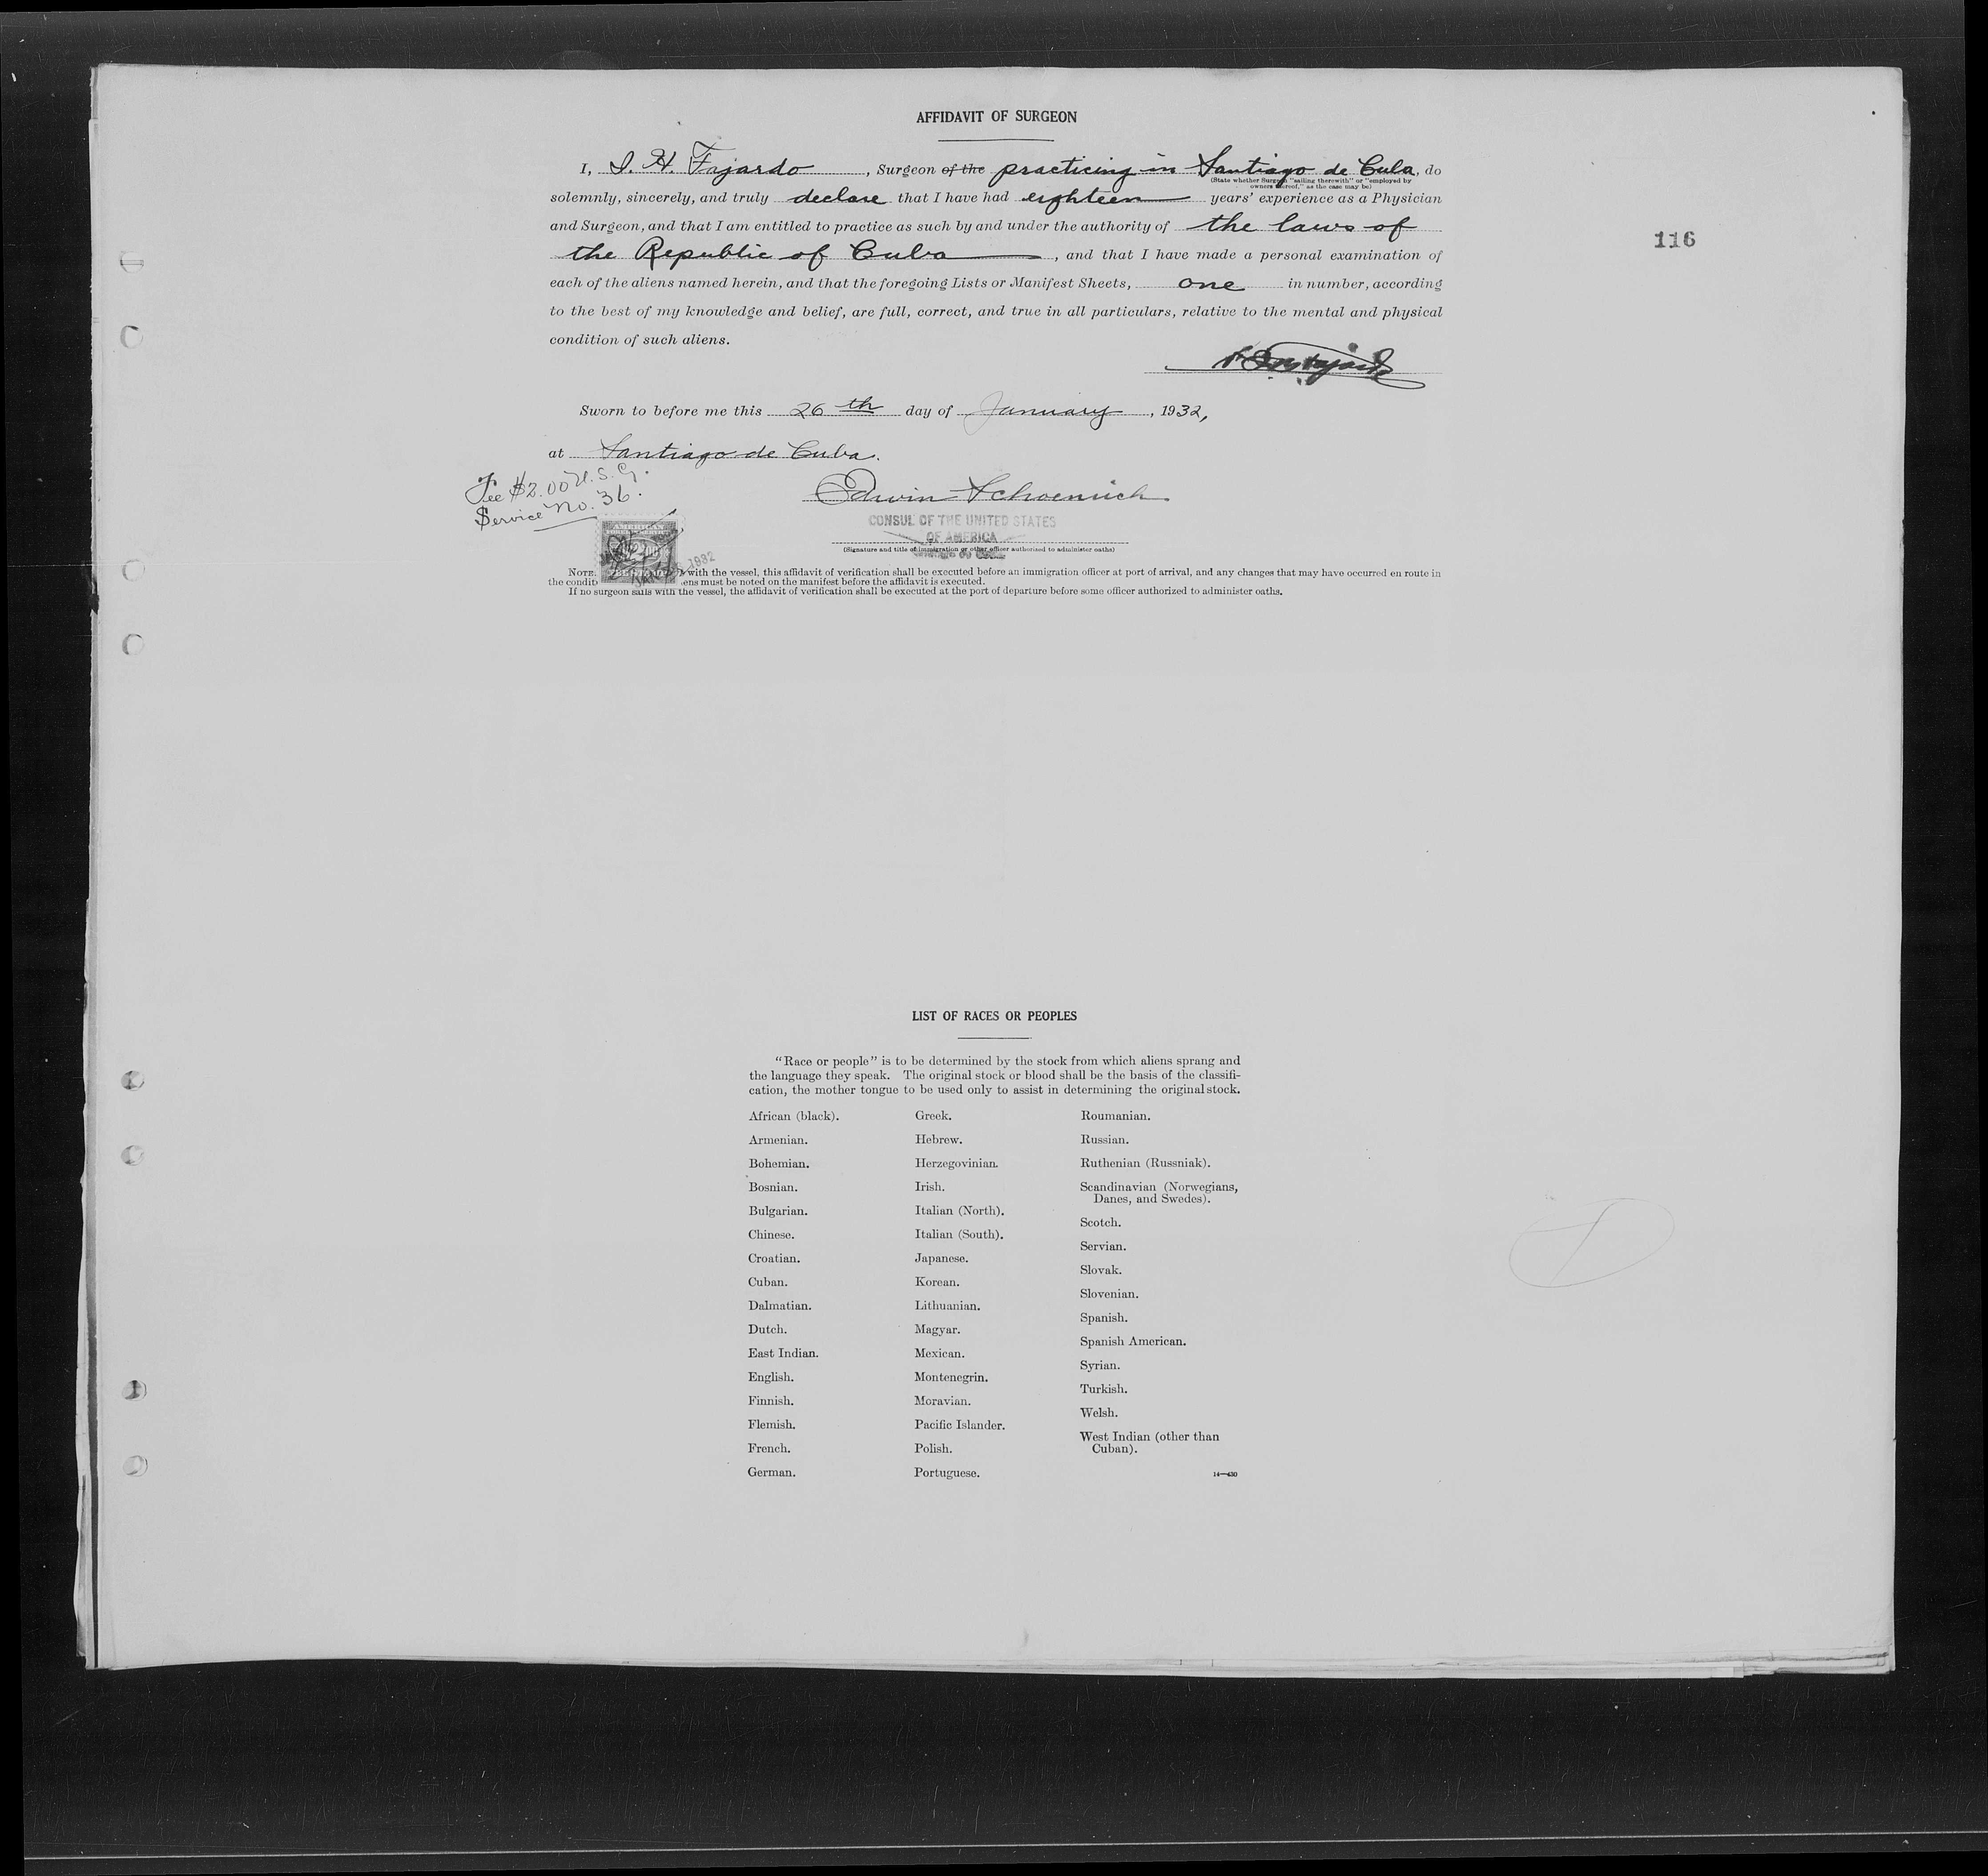 AFFIDAVIT OF SURGEON
I, I. H. Fajardo, Surgeon of the practicing in Santiago de Cuba, do
(State whether Surgeon "sailing therewith" or "employed by
owners thereof," as the case may be)
solemnly, sincerely, and truly declare that I have had eighteen years' experience as a Physician
and Surgeon, and that I am entitled to practice as such by and under the authority of the laws of
the Republic of Cuba, and that I have made a personal examination of
each of the aliens named herein, and that the foregoing Lists or Manifest Sheets, one in number, according
to the best of my knowledge and belief, are full, correct, and true in all particulars, relative to the mental and physical
condition of such aliens.
116
Sworn to before me this 26th day of January, 1932,
at Santiago de Cuba.
Fee $2.00 U.S.G.
Service No. 36.
Edwin Schoenrich
CONSUL OF THE UNITED STATES
OF AMERICA
(Signature and title of immigration or other officer authorized to administer oaths)
AMERICAN
1932
NOTE. with the vessel, this affidavit of verification shall be executed before an immigration officer at port of arrival, and any changes that may have occurred en route in
the condit ens must be noted on the manifest before the affidavit is executed.
If no surgeon sails with the vessel, the affidavit of verification shall be executed at the port of departure before some officer authorized to administer oaths.
LIST OF RACES OR PEOPLES
"Race or people" is to be determined by the stock from which aliens sprang and
the language they speak. The original stock or blood shall be the basis of the classifi-
cation, the mother tongue to be used only to assist in determining the original stock.
African (black).
Armenian.
Bohemian.
Bosnian.
Bulgarian.
Chinese.
Croatian.
Cuban.
Dalmatian.
Dutch.
East Indian.
English.
Finnish.
Flemish.
French.
German.
Greek.
Hebrew.
Herzegovinian.
Irish.
Italian (North).
Italian (South).
Japanese.
Korean.
Lithuanian.
Magyar.
Mexican.
Montenegrin.
Moravian.
Pacific Islander.
Polish.
Portuguese.
Roumanian.
Russian.
Ruthenian (Russniak).
Scandinavian (Norwegians,
Danes, and Swedes).
Scotch.
Servian.
Slovak.
Slovenian.
Spanish.
Spanish American.
Syrian.
Turkish.
Welsh.
West Indian (other than
Cuban).
14—430